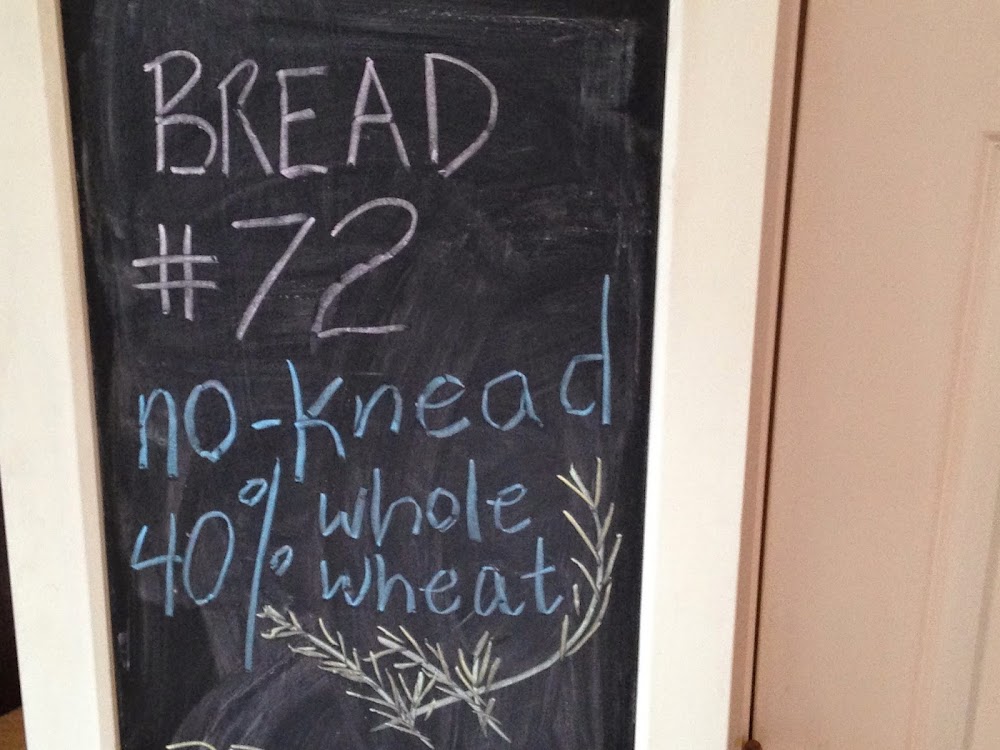 BREAD
#72
no-knead
40% whole
wheat